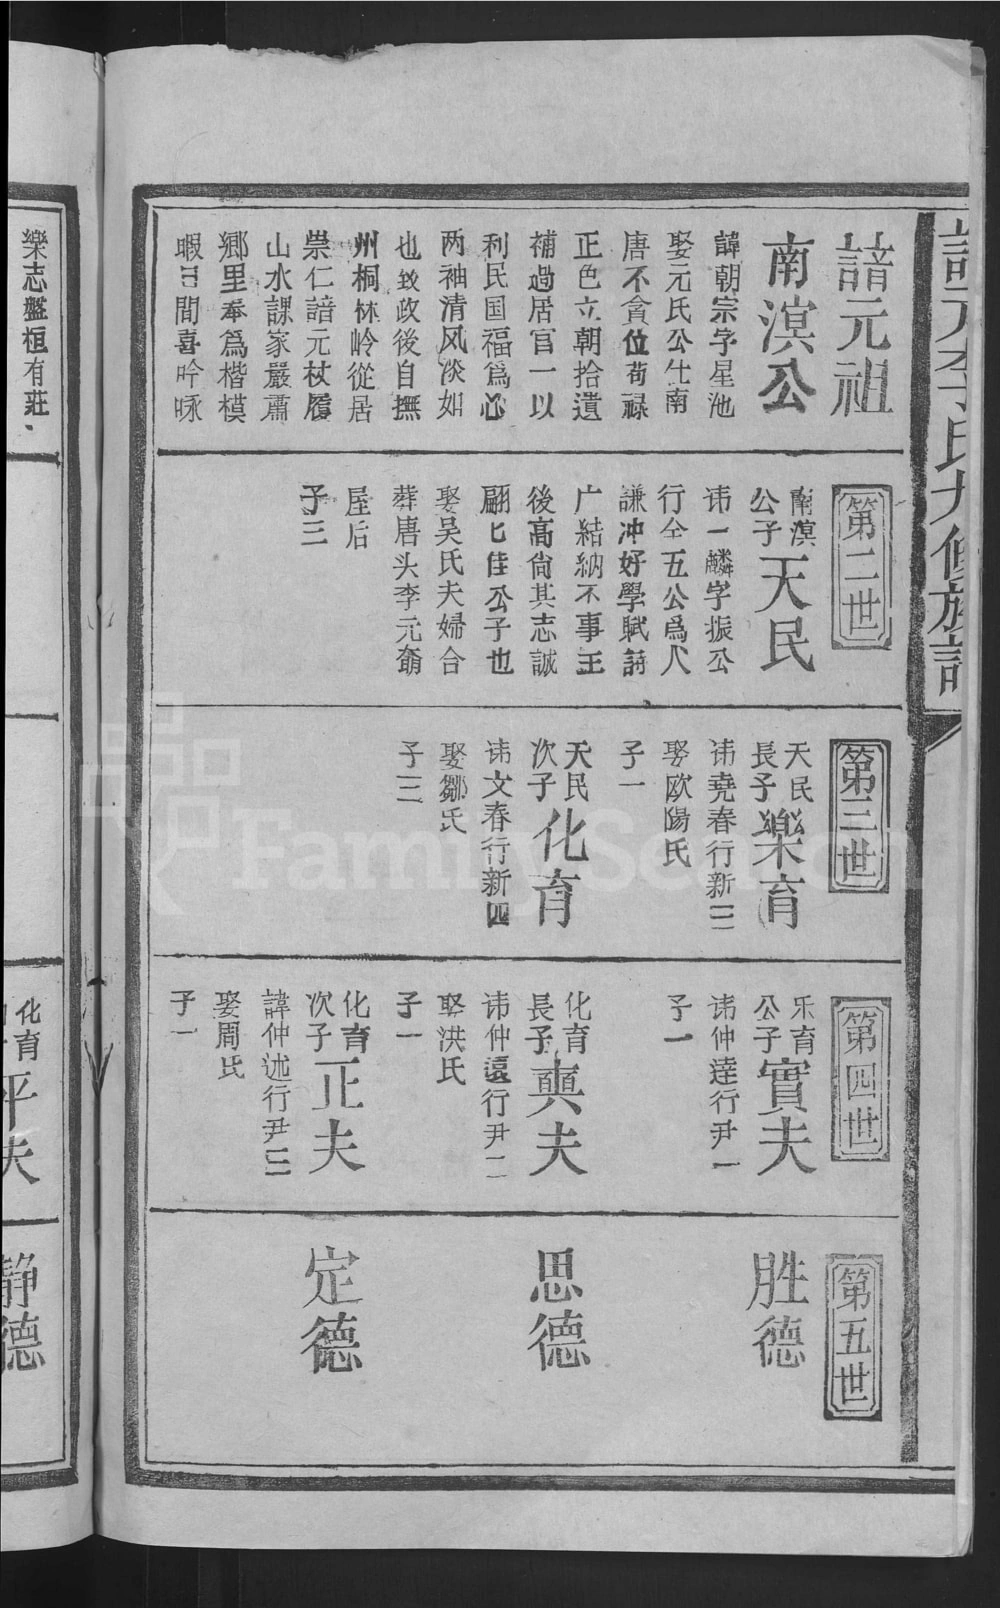 諳元李氏九修族譜
諳元祖
南溟公
諱朝宗字星池
娶元氏公仕南
唐不貪位苟禄
正色立朝拾遺
補過居官一以
利民国福爲心
两袖清风淡如
也致政後自撫
州桐林岭從居
崇仁諳元杖履
山水課家嚴肅
鄉里奉爲楷模
暇日間喜吟咏
第二世
南溟
公子
天民
讳一麟字振公
行仝五公爲人
謙冲好學賦詩
广結納不事王
後高尙其志誠
翩匕佳公子也
娶吴氏夫婦合
葬唐头李元
屋后
子三
第三世
天民
長子
樂育
讳堯春行新三
娶歐陽氏
子一
天民
次子
化育
讳文春行新四
娶鄒氏
子三
第四世
乐育
公子
實夫
讳仲逹行尹一
子一
化育
長子
奭夫
讳仲遠行尹二
娶洪氏
子一
化育
次子
正夫
諱仲述行尹三
娶周氏
子一
第五世
胜德
思德
定德
樂志盤桓有莊
化育
平夫
静德
FamilySearch